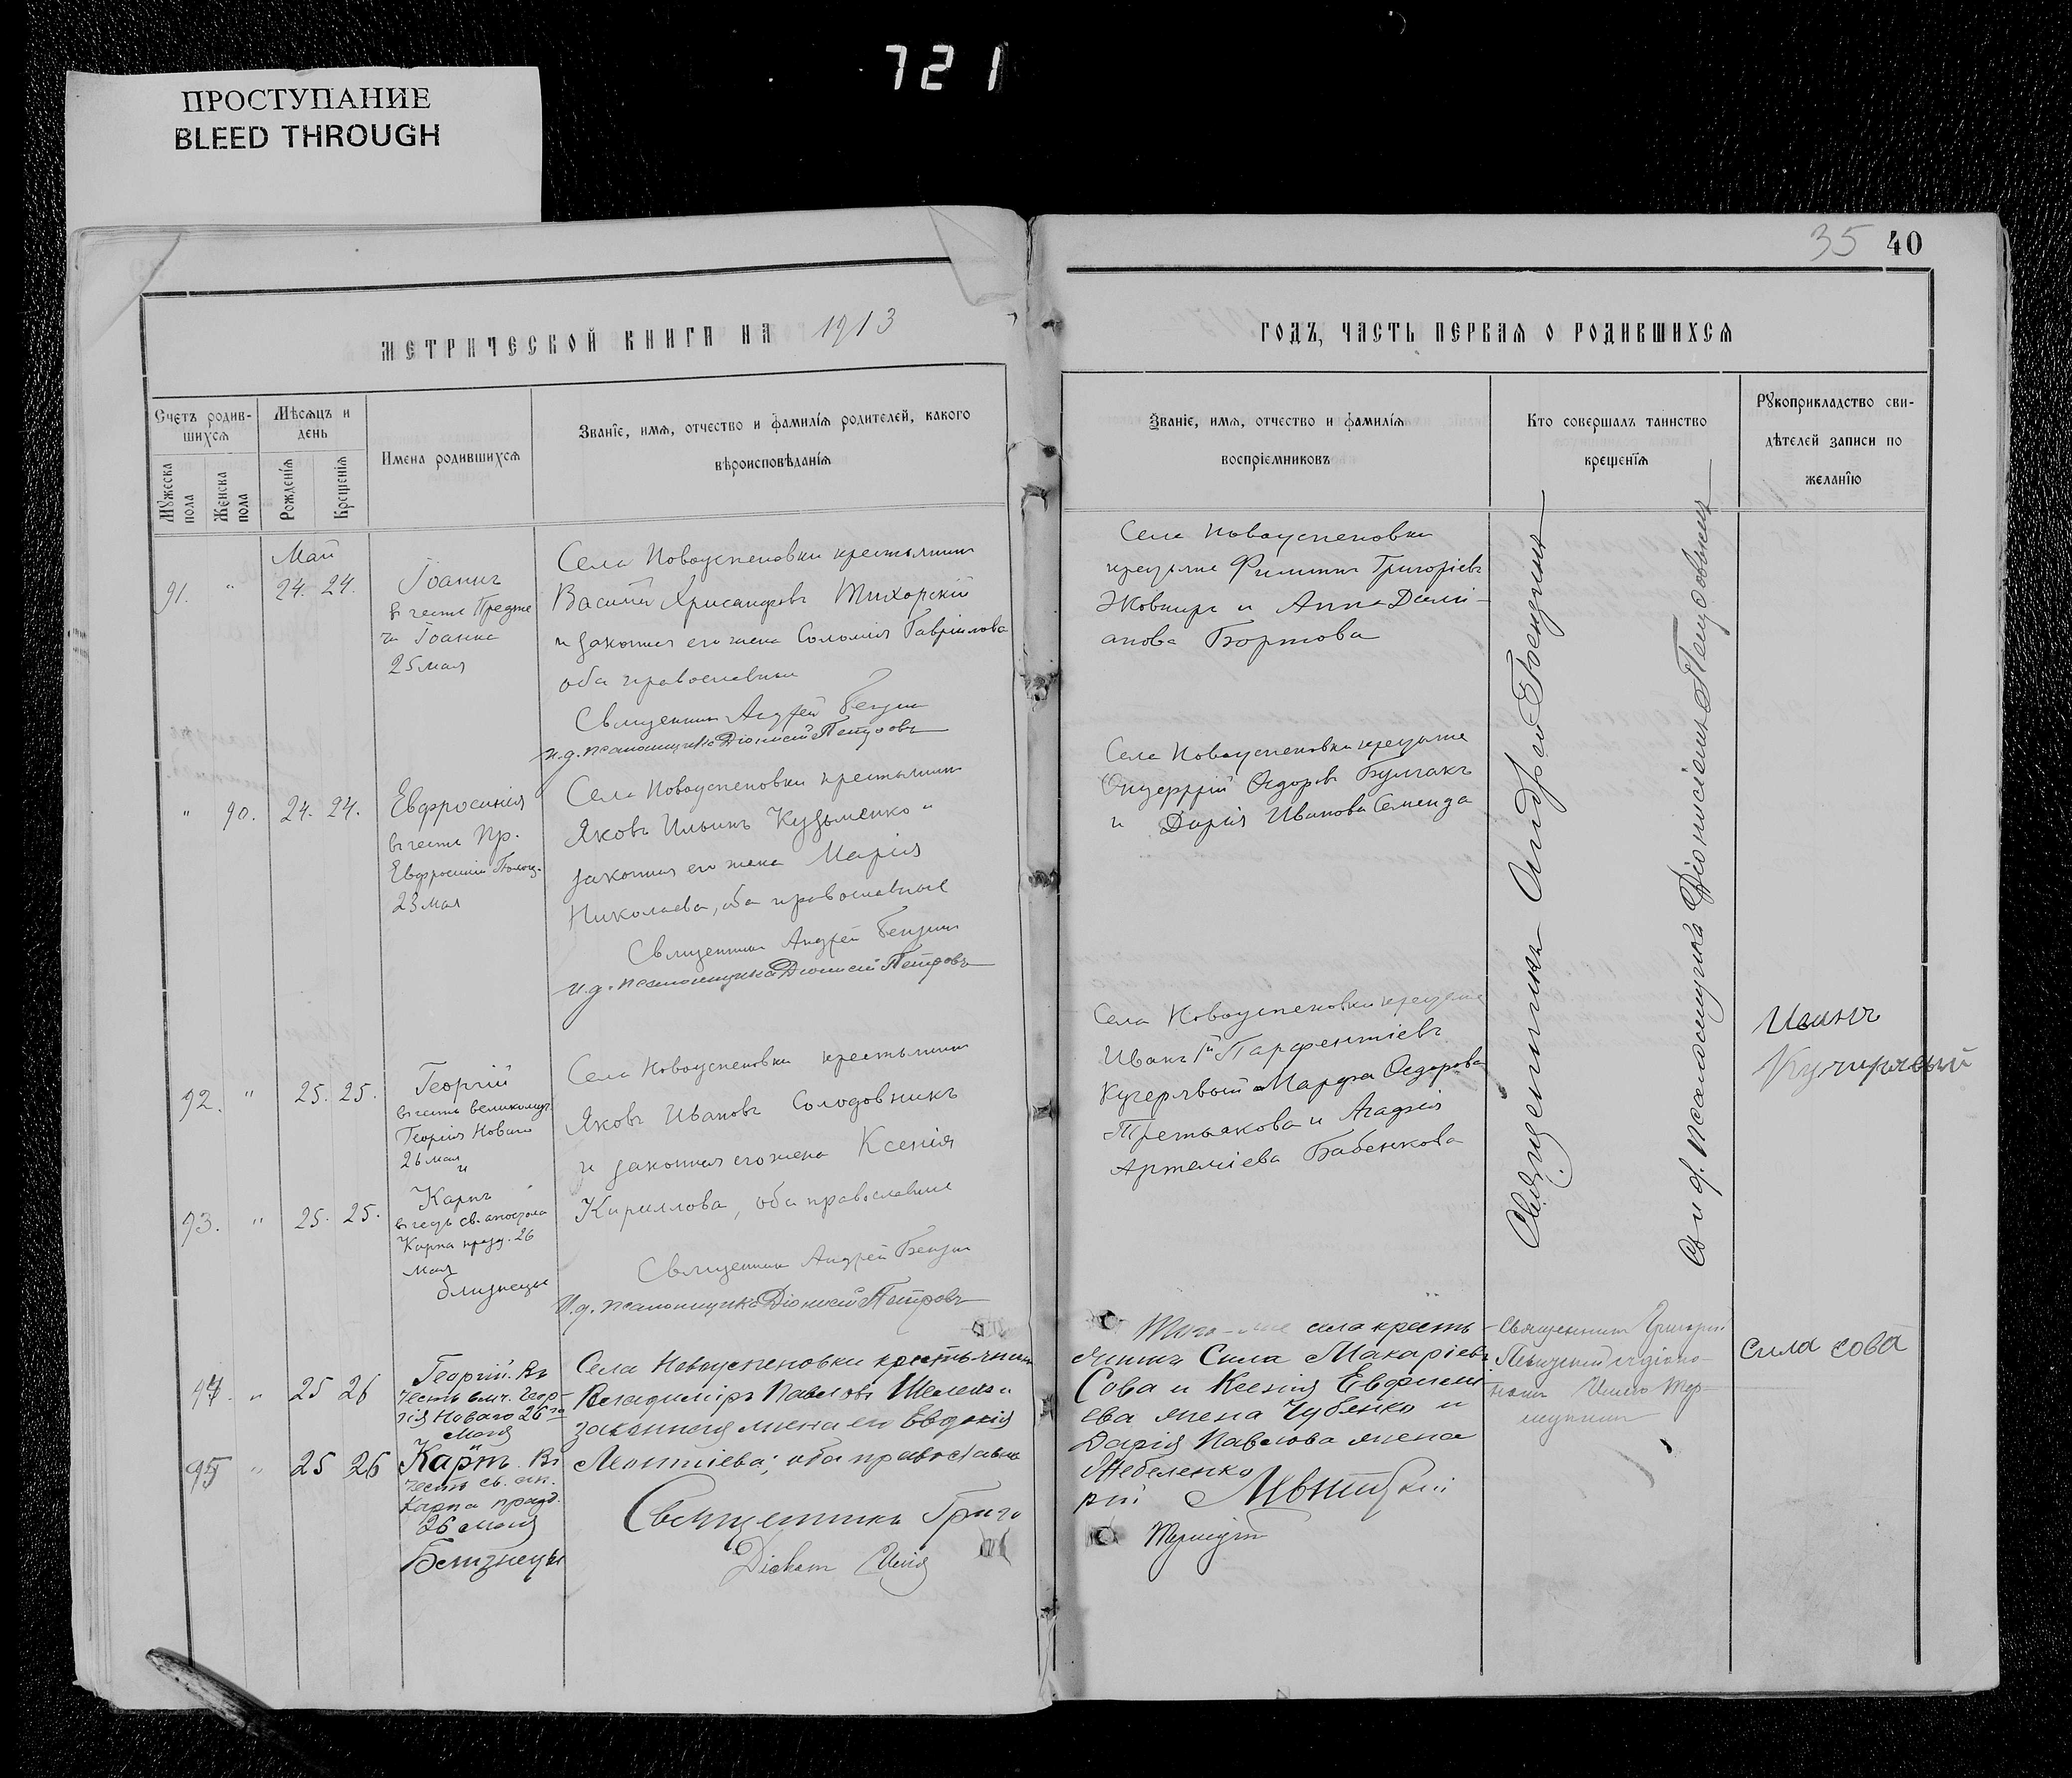 721
ПРОСТУПАНИЕ
BLEED THROUGH
35 40
МЕТРИЧЕСКОЙ КНИГИ НА 1913
ГОДЪ, ЧАСТЬ ПЕРВАЯ О РОДИВШИХСЯ
Счетъ родив-
шихся
Мѣсяцъ и
день
Имена родившихся
Званіе, имя, отчество и фамилія родителей, какого
вѣроисповѣданія
Мужеска
пола
Женска
пола
Рожденія
Крещенія
Званіе, имя, отчество и фамилія
воспріемниковъ
Кто совершалъ таинство
крещенія
Рукоприкладство сви-
дѣтелей записи по
желанію
Май
91. " 24. 24.
Іоаннъ
въ честь Предте
чи Іоанна
25 мая
Села Новоуспеновки крестьянинъ
Василій Хрисанфовъ Тихорскій
и законная его жена Соломія Гавріилова
оба православные
Священникъ Андрей
и.д. псаломщика Діонисій Петровъ
Села Новоуспеновки
Филиппъ Григоріевъ
Жовниръ и Анна Даміа-
нова Бортова
" 90. 24. 24.
Евфросинія
въ честь Пр.
Евфросиніи Полоц.
23 мая
Села Новоуспеновки крестьянинъ
Яковъ Ильинъ Кузьменко и
законная его жена Марія
Николаева, оба православные
Священникъ Андрей
И.д. псаломщика Діонисій Петровъ
Села Новоуспеновки
Ѳедоровъ Булгакъ
и Дарія Иванова Семенда
92. " 25. 25.
Георгій
въ честь великомуч.
Георгія Новаго
26 мая
и
93. " 25. 25.
Карпъ
въ честь св. апостола
Карпа празд. 26
мая
близнецы
Села Новоуспеновки крестьянинъ
Яковъ Ивановъ Солодовникъ
и законная его жена Ксенія
Кириллова, оба православные
Священникъ Андрей
И.д. псаломщика Діонисій Петровъ
Села Новоуспеновки
Иванъ Парфентіевъ
Кучерявый и Марфа Ѳедорова
Третьякова и Агафія
Артеміева Бабенкова
Священникъ Андрей
съ и.д. псаломщика Діонисіемъ Петровымъ
Иванъ
Кучерявый
94. " 25 26
Георгій. Въ
честь вмч. Геор-
гія Новаго 26го
Мая
95 " 25 26
Карпъ. Въ
честь св. ап.
Карпа празд.
26 мая
Близнецы
Села Новоуспеновки крестьянинъ
Владиміръ Павловъ и
законная жена его Евдокія
Леонтіева; оба православные
Священникъ Григо
Діаконъ
Того-же села кресть-
янинъ Сила Макаріевъ
Сова и Ксенія Евфимі-
ева жена Чубенко и
Дарія Павлова жена
рій
Священникъ Григорій
Сила Сова